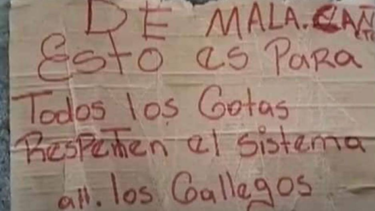 DE MALA.CAÑ
Esto es Para
Todos los Gotas
Respeten el sistema
att. los Gallegos